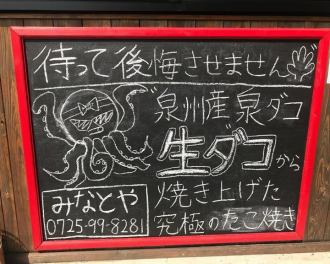 待って後悔させません
泉州産泉ダコ
生ダコから
焼き上げた
究極のたこ焼き
みなとや
0725-99-8281